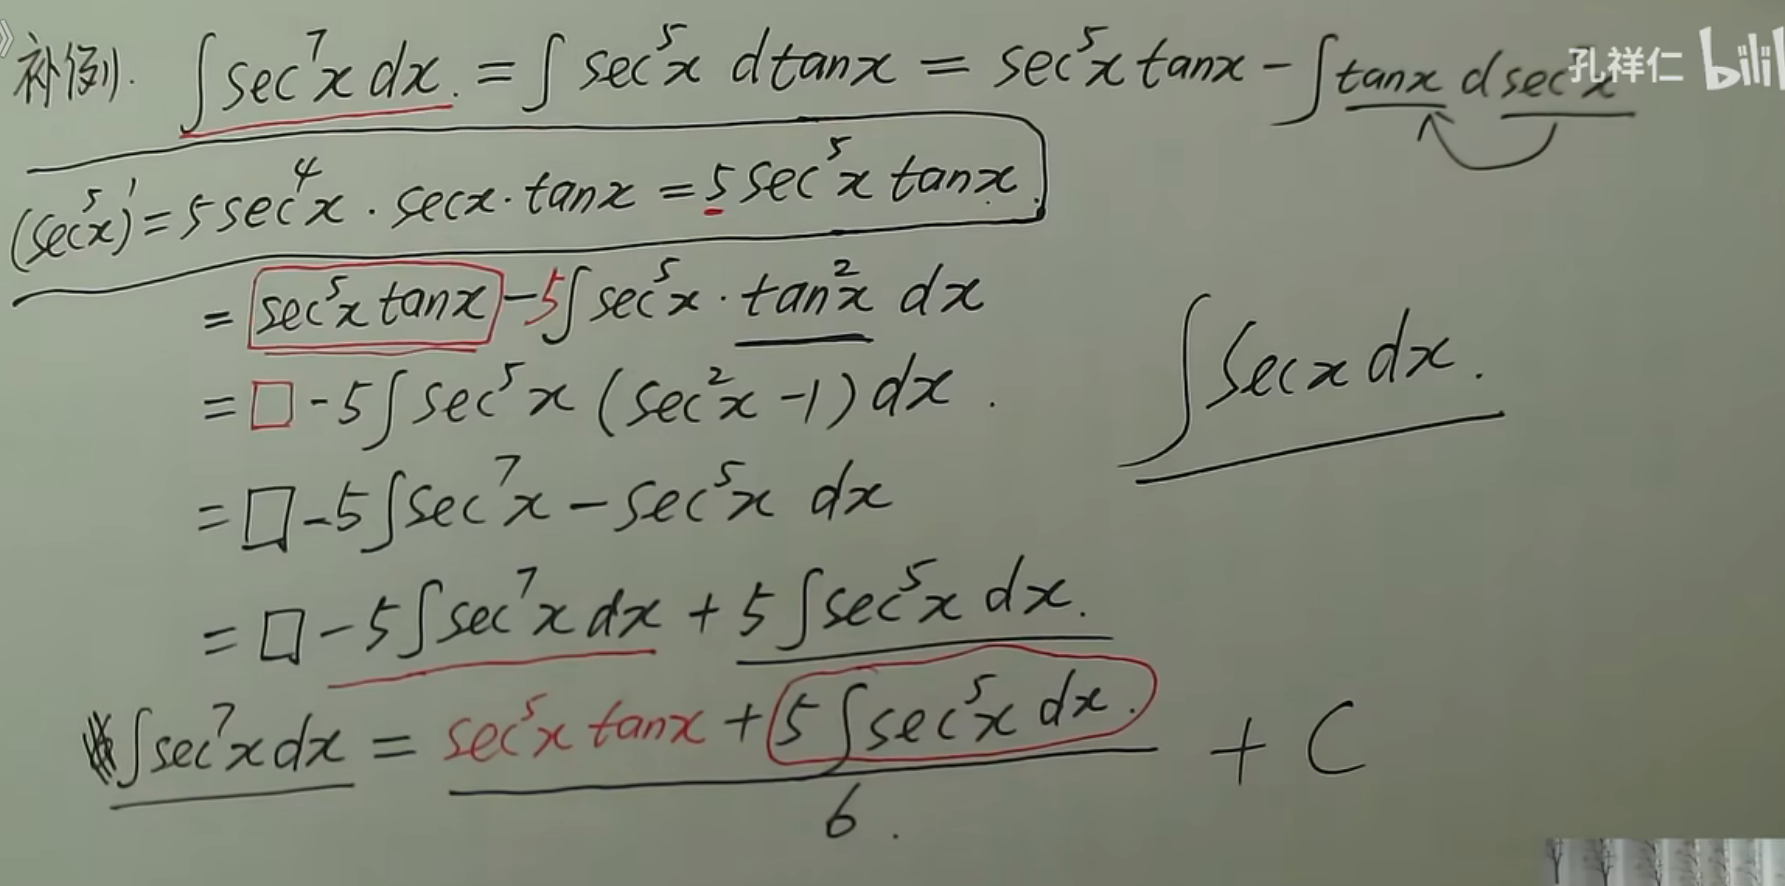 补例. ∫sec⁷x dx. = ∫ sec⁵x dtanx = sec⁵x tanx − ∫tanx dsec⁵x
孔祥仁 bili
(sec⁵x)' = 5sec⁴x · secx · tanx = 5sec⁵x tanx.
= sec⁵x tanx − 5∫sec⁵x · tan²x dx
= □ − 5∫sec⁵x (sec²x − 1) dx.
∫secx dx.
= □ − 5∫sec⁷x − sec⁵x dx
= □ − 5∫sec⁷x dx + 5∫sec⁵x dx.
∫sec⁷x dx = sec⁵x tanx + 5∫sec⁵x dx. + C
6.